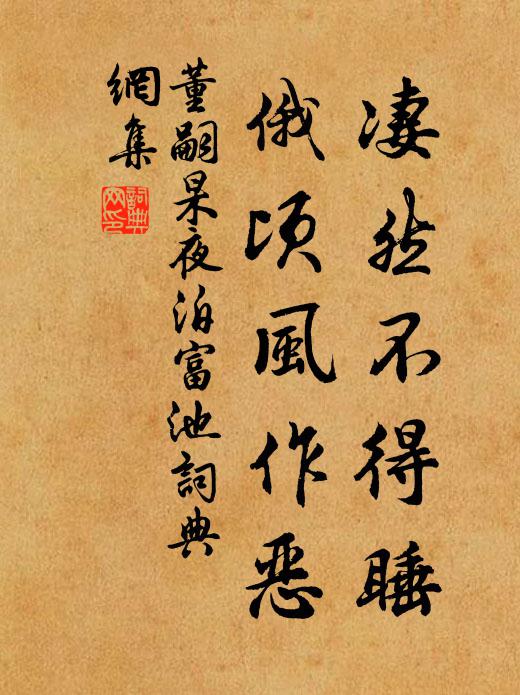 凄然不得睡
俄頃風作惡
董嗣杲夜泊富池詞典
網集
詞典網印